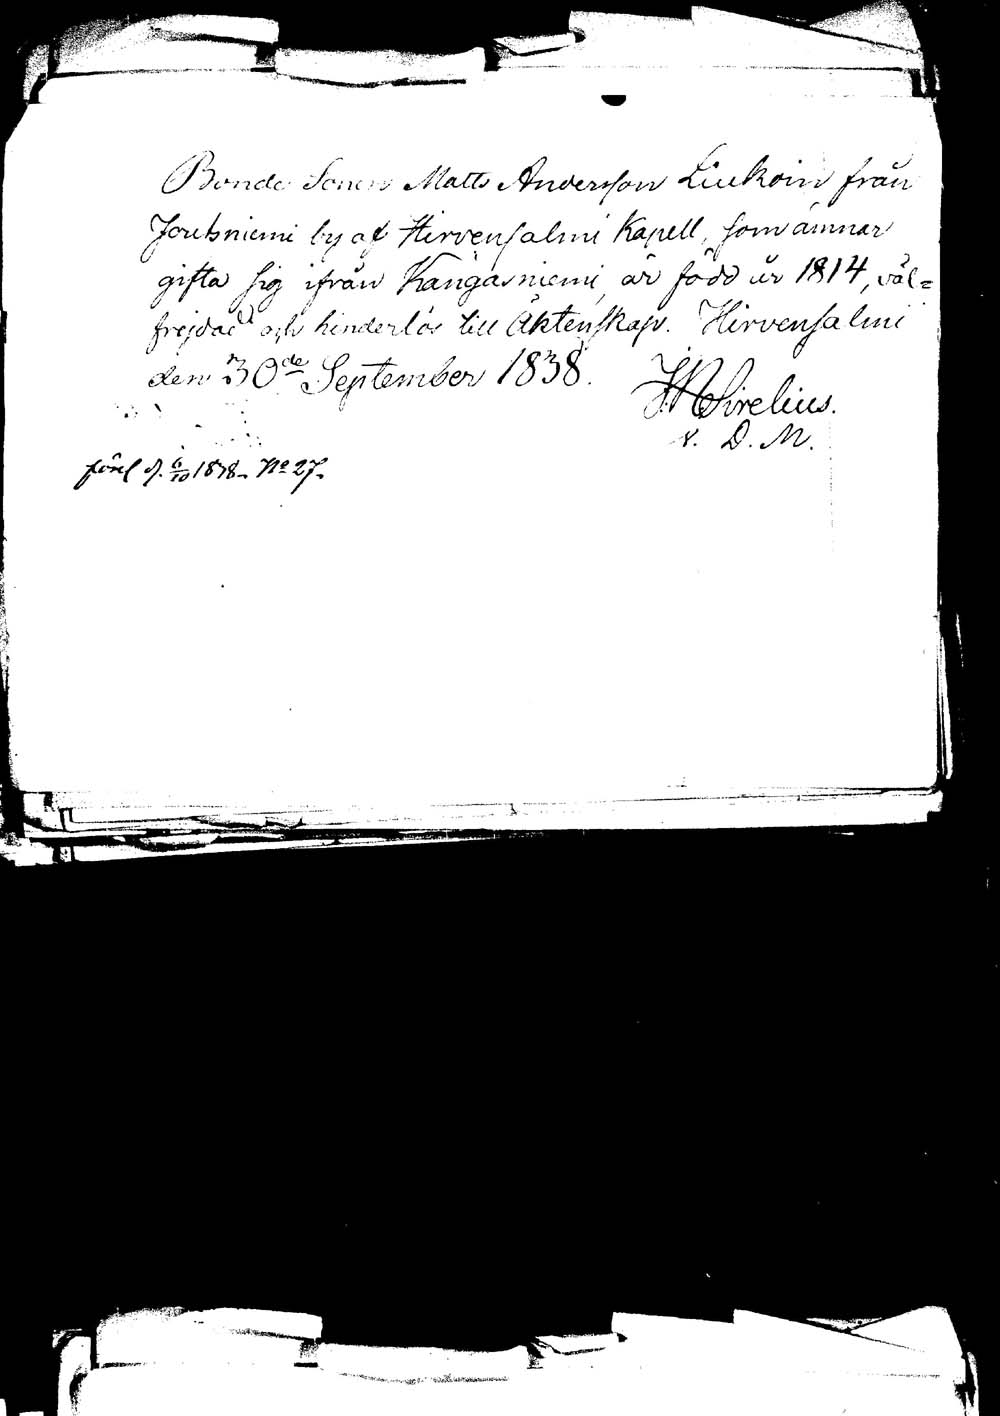 Bonde Sonen Matts Andersson Liukoin från
Joutsniemi by af Hirvensalmi Kapell, som ämnar
gifta sig ifrån Kangasniemi, är född år 1814, väl=
frejdad och hinderlös till Äktenskap. Hirvensalmi
den 30de September 1838.
Sirelius.
v. D. M.
d. 6/10 1838. No 27.